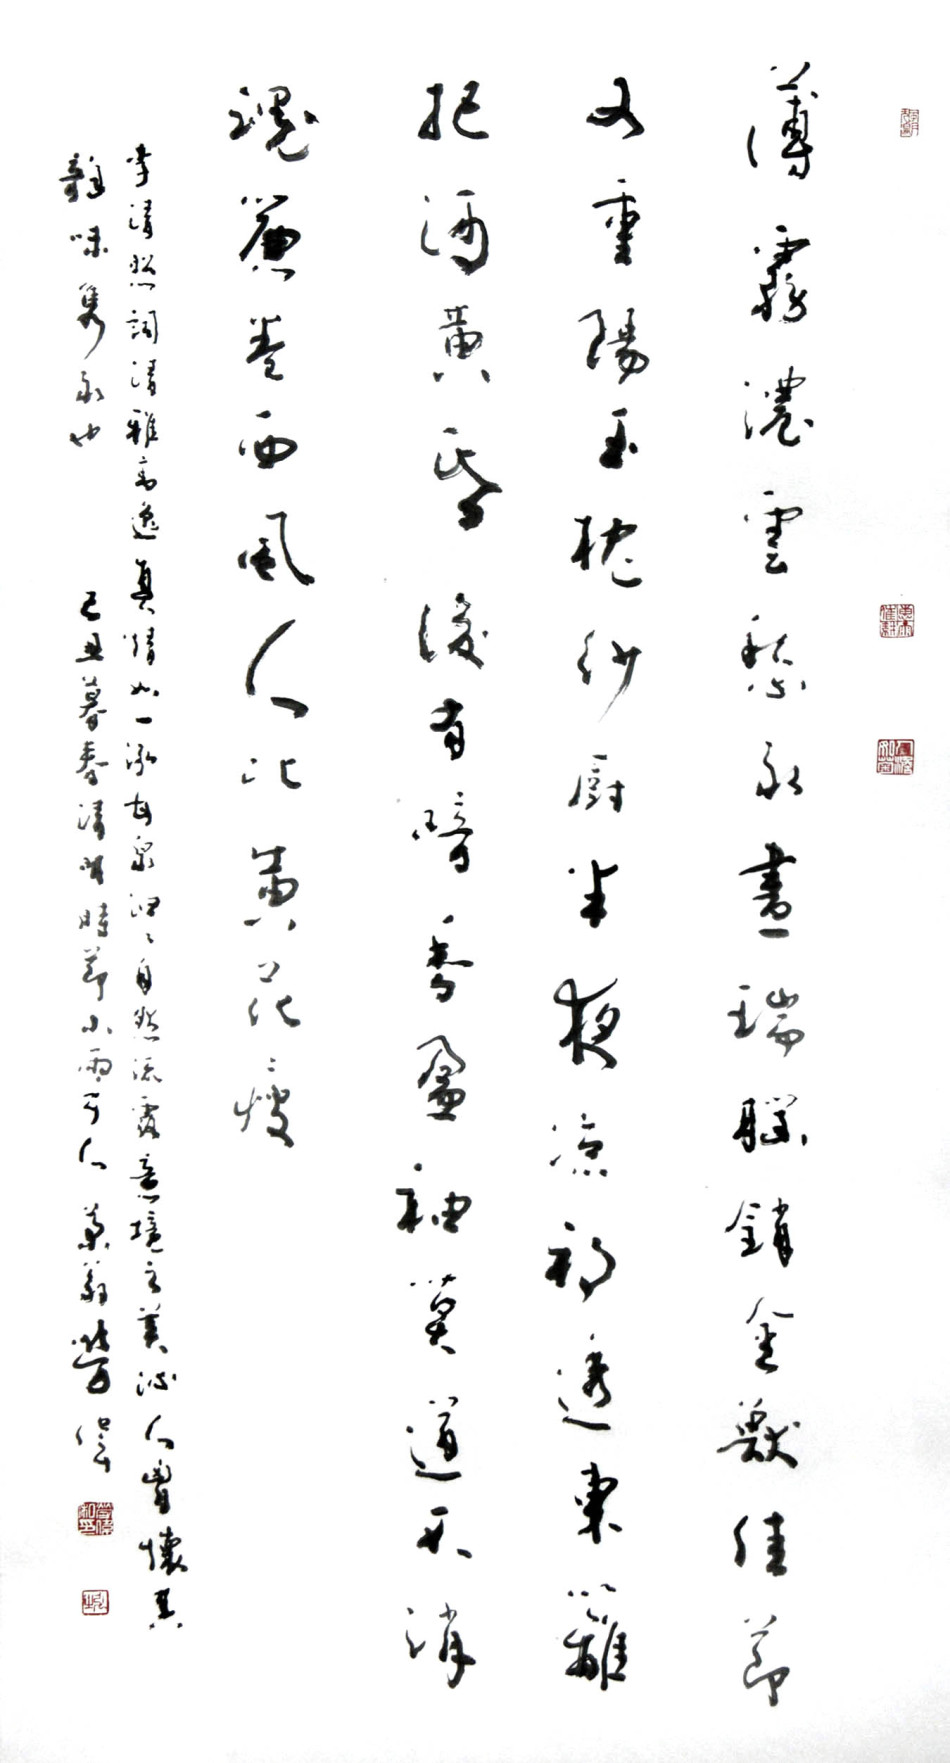 薄霧濃雲愁永晝瑞腦銷金獸佳節
又重陽玉枕紗厨半夜凉初透東籬
把酒黃昏後有暗香盈袖莫道不消
魂簾卷西風人比黃花瘦
李清照詞清雅高逸真情如一泓甘泉自然流露意境之美沁人胸懷其
韻味雋永也 己丑暮春清明時節小雨可人